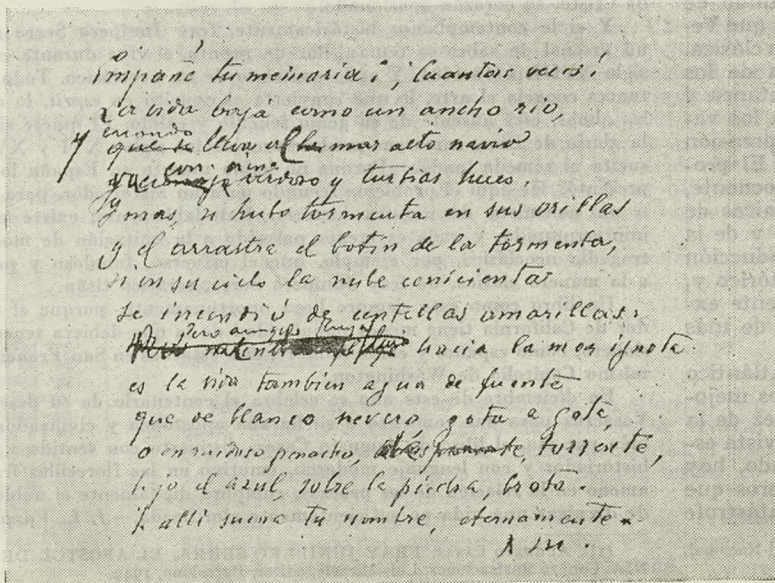 Empañé tu memoria. ¡Cuantas veces!
La vida baja como un ancho rio,
y cuando lleva al mar alto navio
va con cieno verdoso y turbias heces.
Y mas si hubo tormenta en sus orillas
y él arrastra el botin de la tormenta,
si en su cielo la nube cenicienta
se incendió de centellas amarillas.
Pero aunque fluya hacia la mar ignota
es la vida tambien agua de fuente
que de blanco nevero gota a gota,
o en ruidoso penacho, torrente,
bajo el azul, sobre la piedra, brota.
Y allí suena tu nombre, eternamente.
A M.